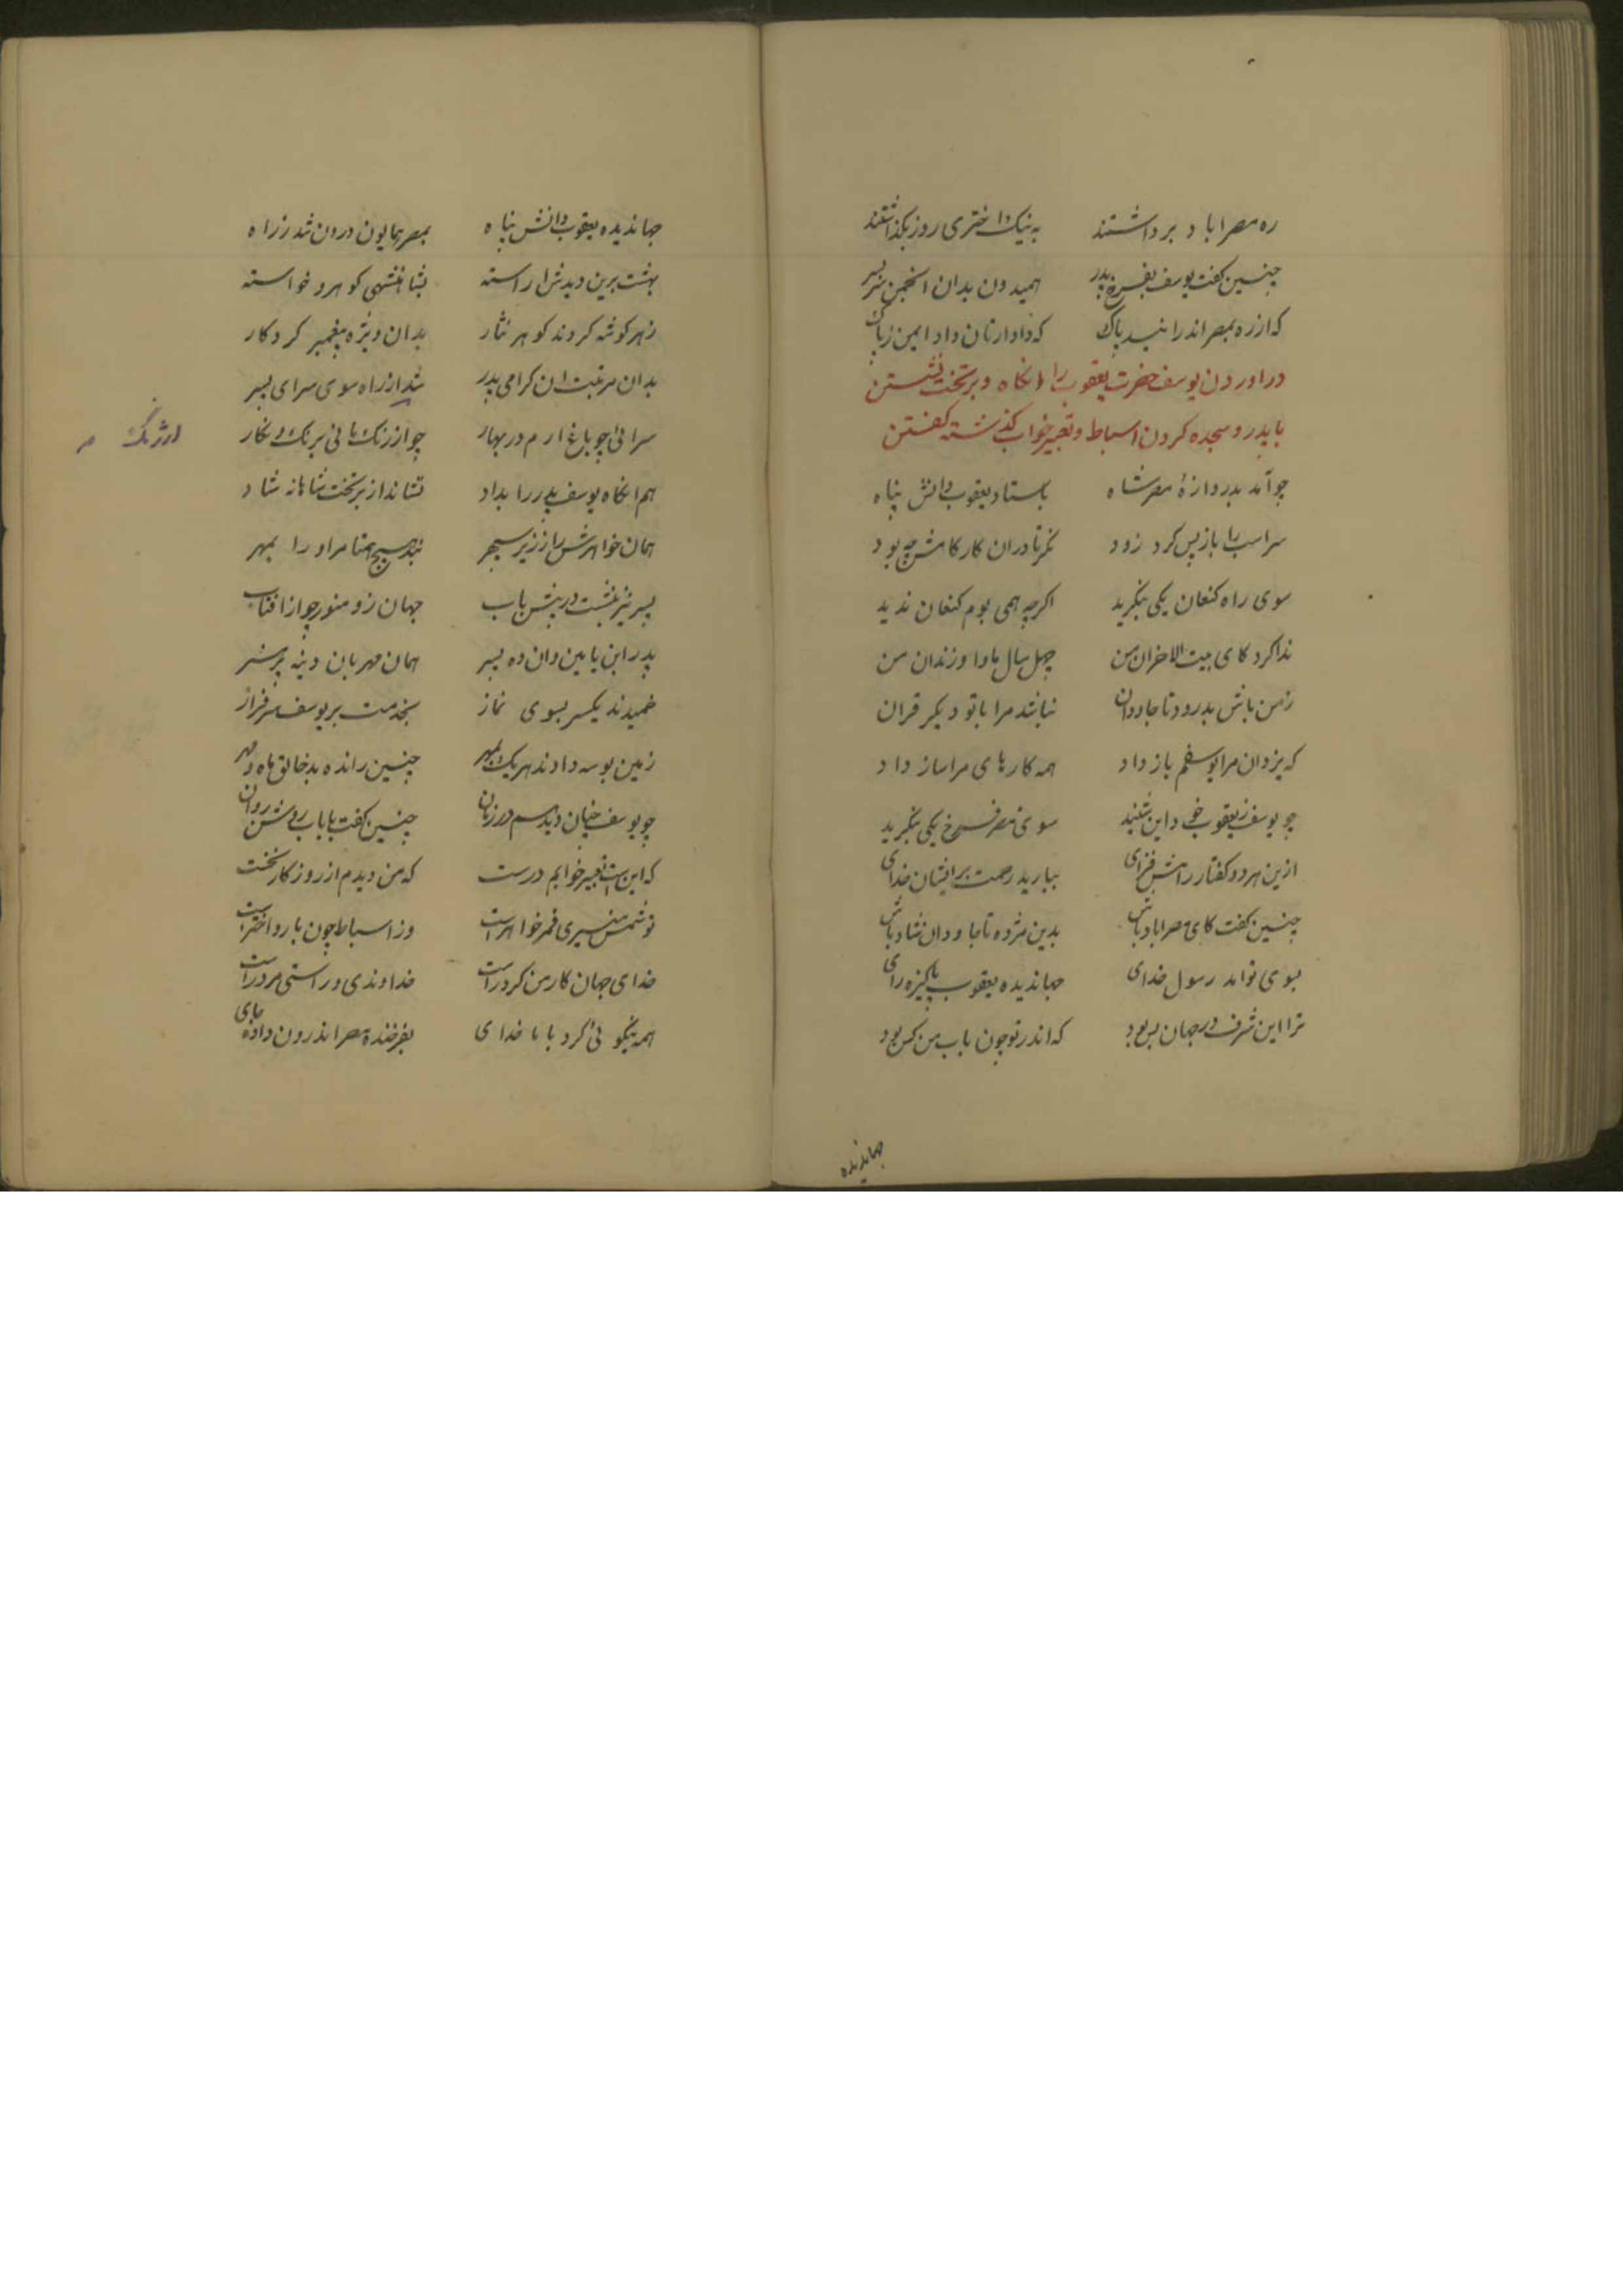 ره مصر اباد برداشتند به نیک اختری روز بگذاشتند
چنین کفت یوسف بفرخ پدر همیدون بدان انجمن سربسر
که از ره بمصر اندر ائید پاک که دادارتان داد ایمن ز باک
در اوردن یوسف حضرت یعقوب را و برتخت نشستن
با پدر و سجده کردن اسباط و تعبیر خواب گذشته کفتن
چو آمد بدروازهٔ مصر شاه باستاد یعقوب دانش پناه
سر اسب را باز پس کرد زود نکر تا دران کار کامش چه بود
سوی راه کنعان یکی بنکرید اکرچه همی بوم کنعان ندید
ندا کرد کای بیت الاحزان من چهل سال ماوا و زندان من
زمن باش بدرود تا جاودان نباشد مرا باتو دیکر قران
که یزدان مرا یوسفم باز داد همه کارهای مرا ساز داد
چو یوسف زیعقوب این شنید سوی مصر فرخ یکی بنکرید
ازین هر دو کفتار رامش فزای ببارید رحمت برایشان خدای
چنین کفت کای مصر اباد باش بدین مژده تا جاودان شاد باش
بسوی تو امد رسول خدای جهاندیده یعقوب پاکیزه رای
ترا این شرف در جهان بس بود که اندر تو چون باب من کس بود
جهاندیده
جهاندیده یعقوب دانش پناه بمصر همایون درون شد ز راه
بهشت برین دیدش اراسته بشاهنشهی کوهر و خواسته
زهر کوشه کردند کوهر نثار بدان ویژه پیغمبر کردکار
بدان مرتبت ان کرامی پدر شد از راه سوی سرای پسر
سرائی چو باغ ارم در بهار چو ارژنک مانی پر نک و نکار
ارژنگ
هم انکاه یوسف پدر را بداد نشاند از بر تخت شاهانه شاد
همان خواهرش را ززیر سپهر نبد هیچ همتا مر او را بمهر
پسر نیز بنشست در پیش باب جهان زو منور چو از افتاب
پدر ابن یامین وان ده پسر همان مهربان دینه پرشر
خمیدند یکسر بسوی نماز بخدمت بر یوسف سرفراز
زمین بوسه دادند هر یک بمهر چنین رانده بد خالق ماه و مهر
چو یوسف چنان دید هم در زمان چنین کفت با باب روشن روان
که این است تعبیر خوابم درست که من دیدم از روزکار نخست
تو شمس منیری قمر خواهرست وز اسباط چون یازده اخترست
خدای جهان کار من کرد راست خداوندی و راستی مر و راست
همه نیکوئی کرد با ما خدای بفرخنده مصر اندرون داد جای